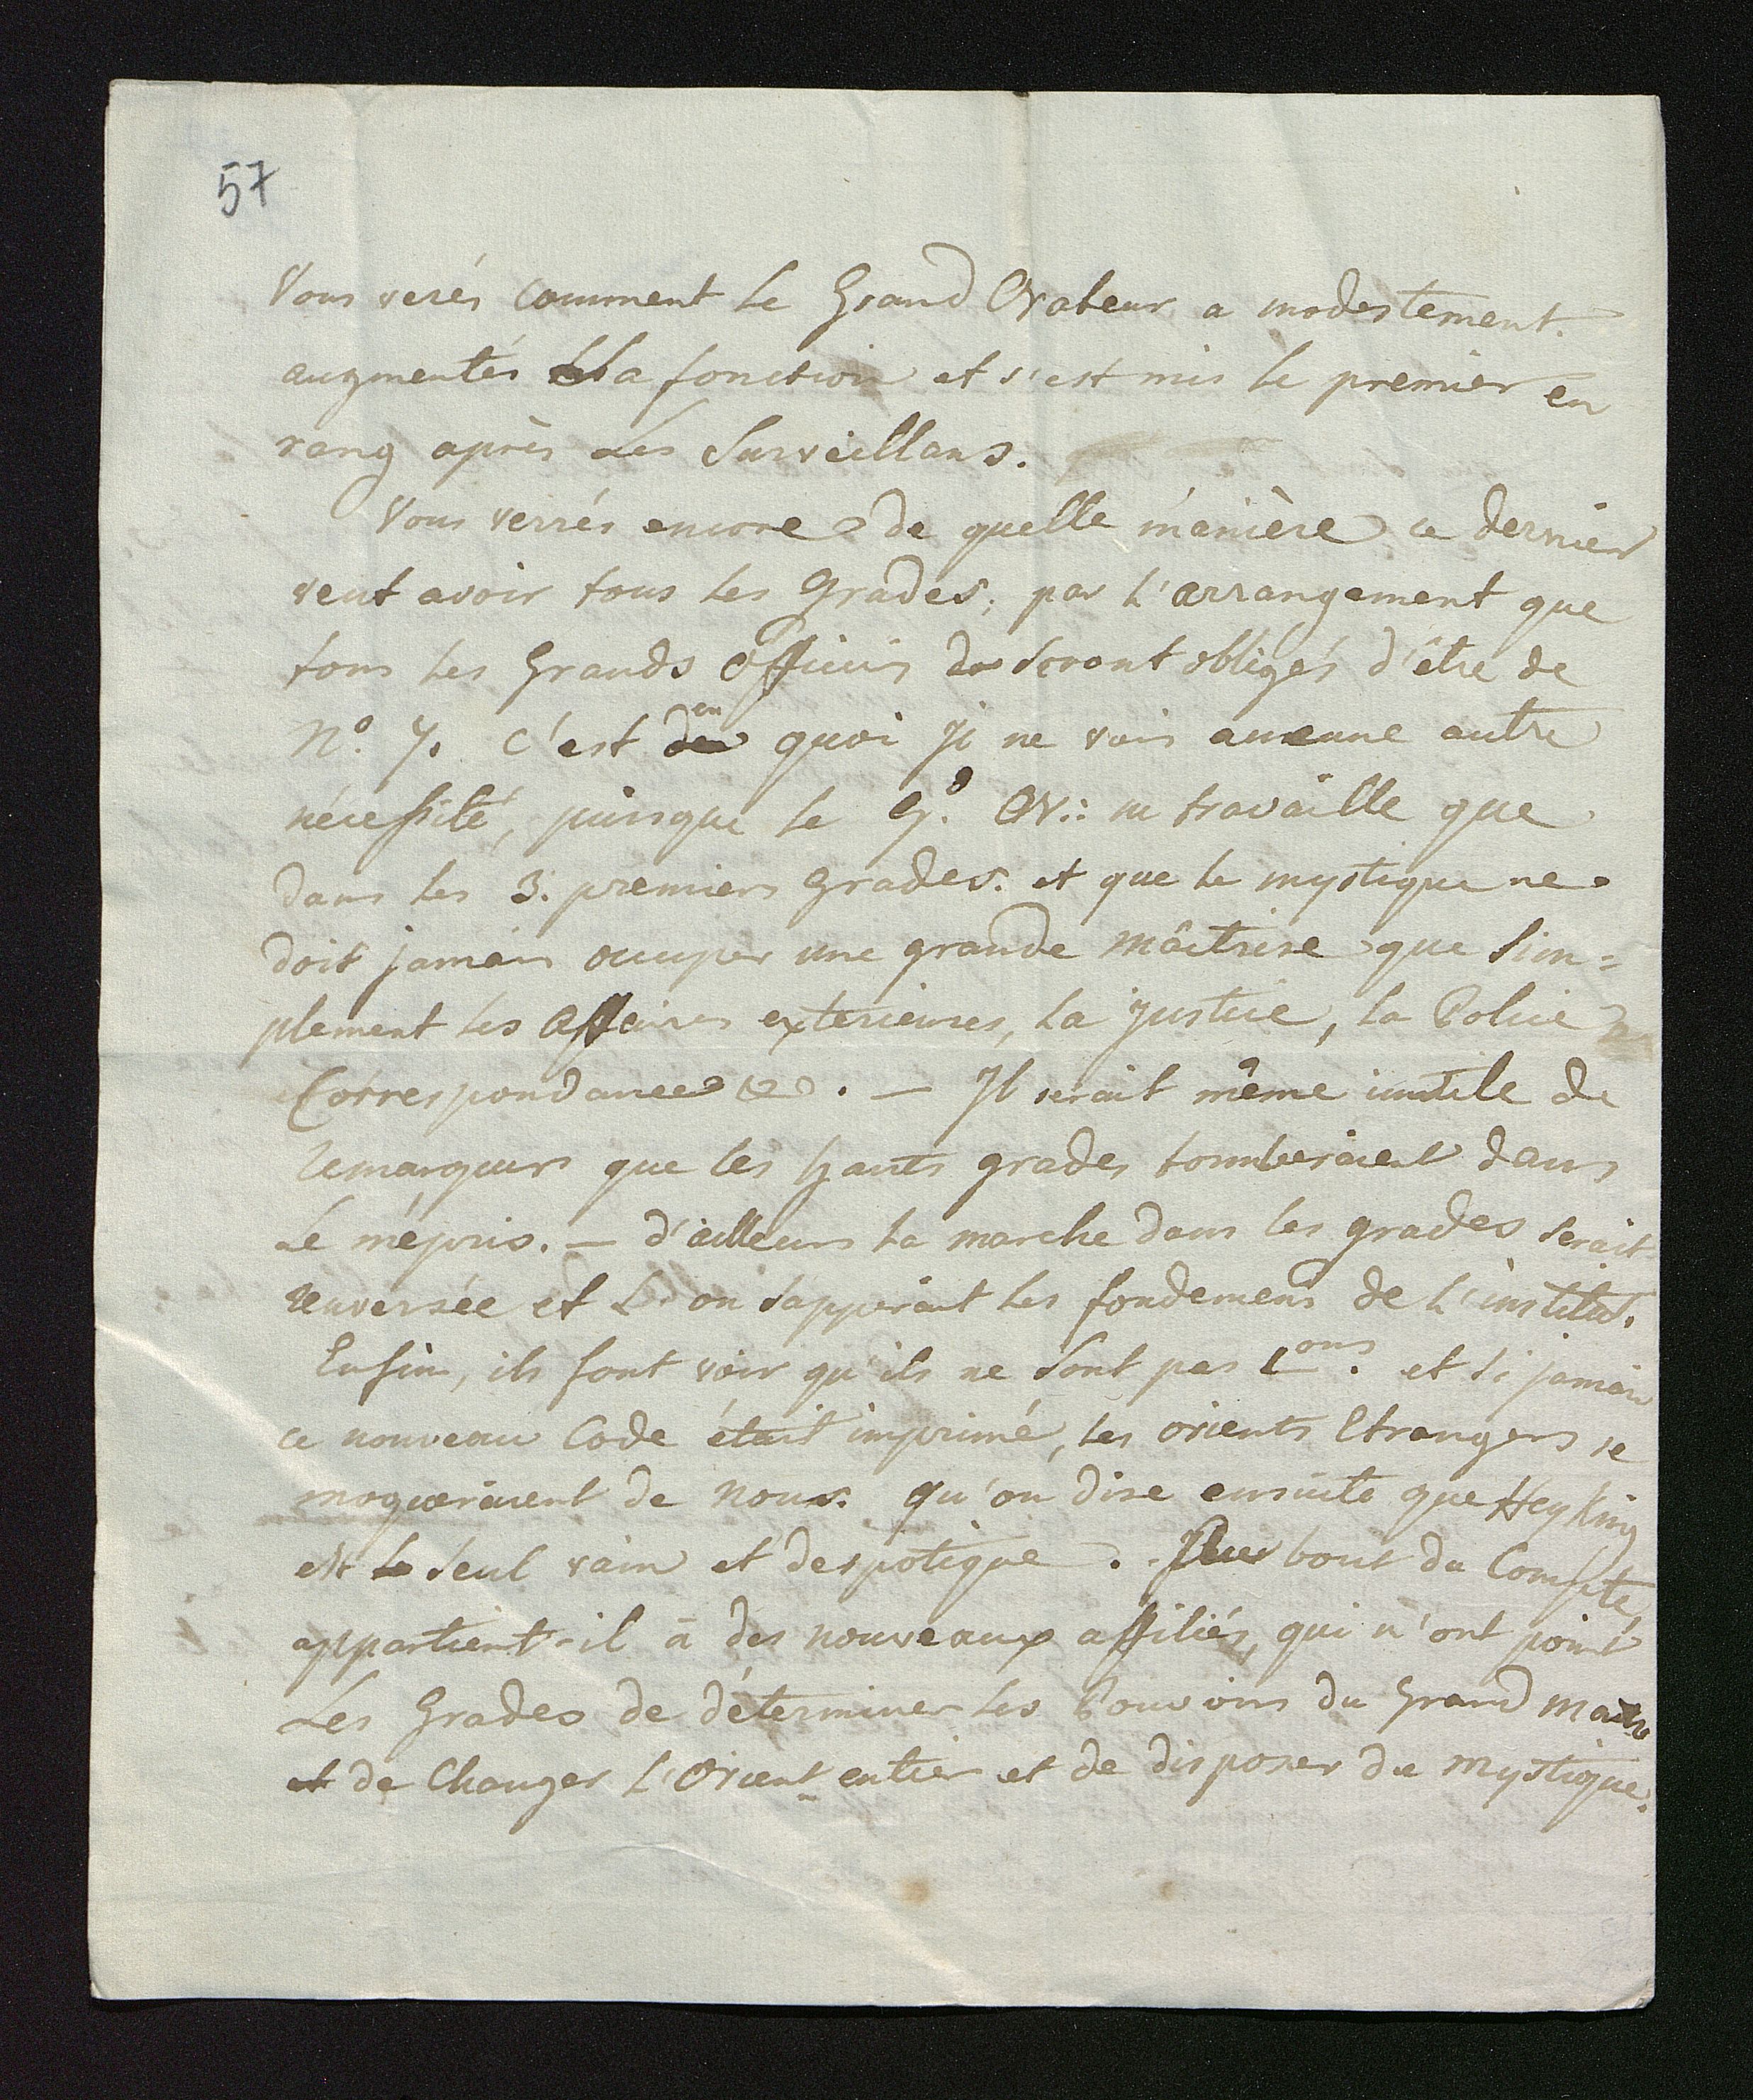 57
Vous verés comment le Grand Orateur a modestement.
augmentés sa fonction et s'est mis le premier en
rang après Les Surveillans.
Vous verrés encore de quelle manière ce dernier
veut avoir tous les Grades; par l'arrangement que
tous les Grands Officiers seront obligés d'être de
N.º 7. c'est en quoi je ne vois aucune autre
nécessité, puisque le G.d Or:: ne travaille que
dans les 3. premiers Grades. et que le mystique ne
doit jamais occuper une grande Maîtrise que Sim=
plement les Affaires exterieures, la Justice, la Police
Correspondance &c. — Il serait même inutile de
remarquer que les hauts grades tomberaient dans
Le mépris. — d'ailleurs la marche dans les grades serait
renversée et L'on sapperait les fondemens de l'institut.
Enfin, ils font voir qu'ils ne sont pas Lons. et si jamais
ce nouveau Code était imprimé, les orients Etrangers se
moqueraient de nous. qu'on dise ensuite que Heyking
est le seul vain et despotique. bout du Compte,
appartient-il à des nouveaux affiliés, qui n'ont point
Les Grades de déterminer les Pouvoirs du Grand Maitre
et de Changer L'Orient entier et de disposer du Mystique.